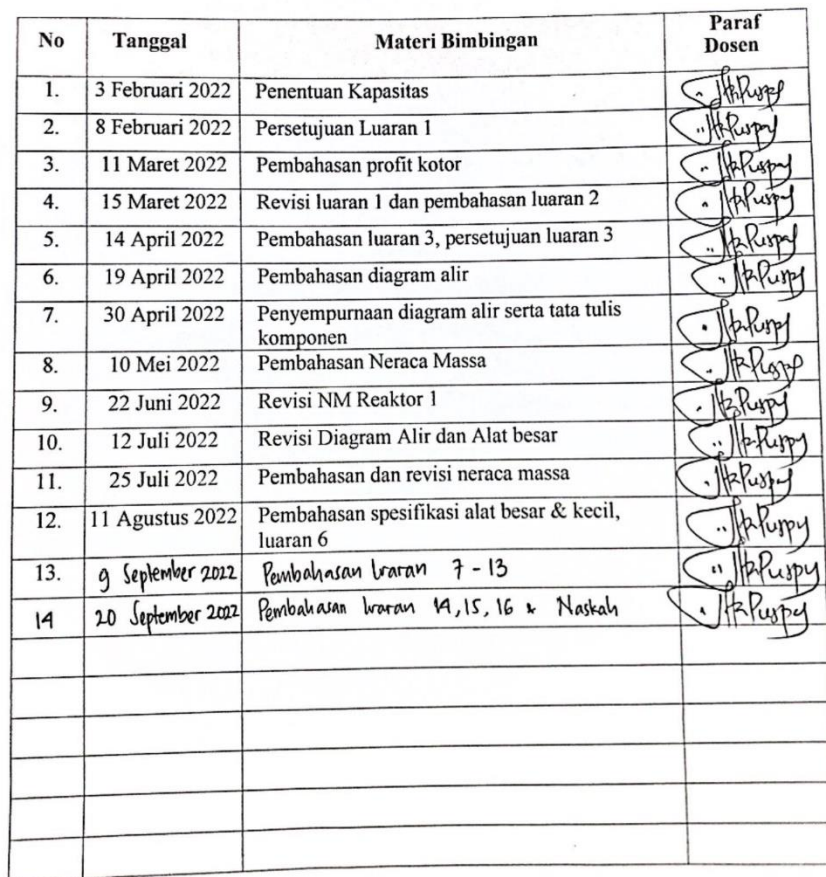 No Tanggal Materi Bimbingan Paraf Dosen
1. 3 Februari 2022 Penentuan Kapasitas
2. 8 Februari 2022 Persetujuan Luaran 1
3. 11 Maret 2022 Pembahasan profit kotor
4. 15 Maret 2022 Revisi luaran 1 dan pembahasan luaran 2
5. 14 April 2022 Pembahasan luaran 3, persetujuan luaran 3
6. 19 April 2022 Pembahasan diagram alir
7. 30 April 2022 Penyempurnaan diagram alir serta tata tulis
komponen
8. 10 Mei 2022 Pembahasan Neraca Massa
9. 22 Juni 2022 Revisi NM Reaktor 1
10. 12 Juli 2022 Revisi Diagram Alir dan Alat besar
11. 25 Juli 2022 Pembahasan dan revisi neraca massa
12. 11 Agustus 2022 Pembahasan spesifikasi alat besar & kecil,
luaran 6
13. 9 September 2022 Pembahasan luaran 7 - 13
14 20 September 2022 Pembahasan luaran 14, 15, 16 & Naskah